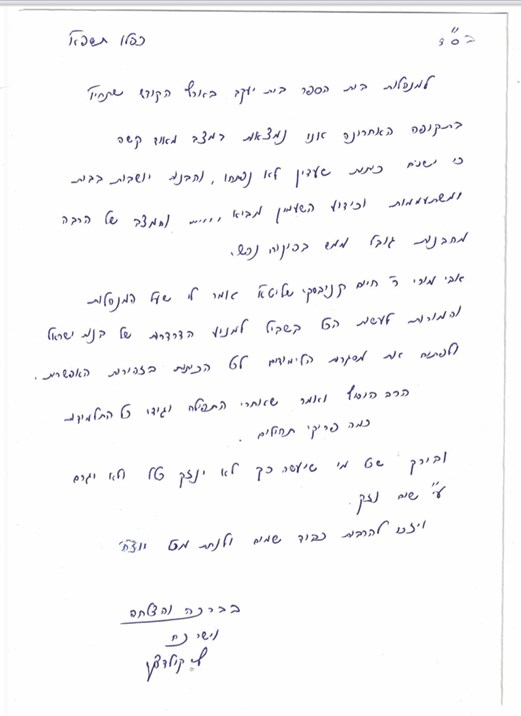 בס"ד
כסלו תשפ"א
למנהלות בית הספר בית יעקב בארץ הקודש שתחי'
בתקופה האחרונה אנו נמצאות במצב מאוד קשה
כי ישנם כיתות שעדיין לא נפתחו, והבנות יושבות בבית
ומשתעממות וכידוע השעמום מביא ..... ומצב של הרבה
מהבנות גובל ממש בפיקוח נפש.
אבי מורי ר' חיים קניבסקי שליט"א אומר לי שעל המנהלות
והמורות לעשות הכל בשביל למנוע הדרדרות של בנות ישראל
ולפתוח את מסגרות הלימודים לכל הכיתות בזהירות האפשרית.
הרב הוסיף ואמר שאחרי התפילה יגידו כל התלמידות
כמה פרקי תהילים.
ובירך שכל מי שיעשה כך לא ינזק כלל ולא יגרם
ע"י שום נזק.
ויזכו להרבות כבוד שמים ולנחת מכל יוצ"ח
בברכה והצלחה